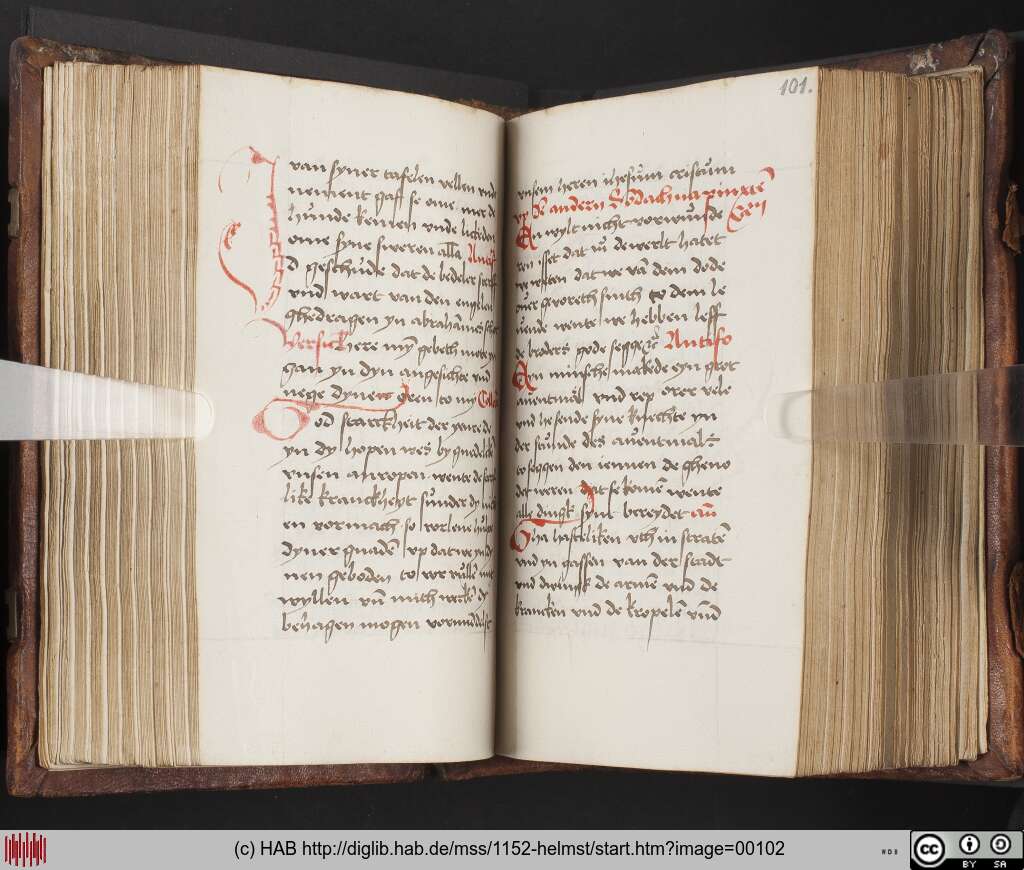 van syner tafelen vellen vnd
nement gaff se ome mer de
hunde kemen vnde lickeden
ome syne sweren alla Anti
d geschude dat de bedeler
vnd wart van den engelen
ghedragen yn abrahames
Versick here my gebeth mote yn
gan yn dyn angesichte vnd
nege dyner oren to my Coll
God starckheit der yenre de
yn dy hopen wes by
vnsen anropen wente de
like kranckheyt sunder dy
en vormach so vorlene
dyner gnade vp dat we yn dy
nen geboden to
wyllen vn mith wercke dy
behagen mogen vormiddelst
101.
vnsem heren ihesum cristum
De andern
En wylt nicht vorwun
ren isset dat iu de werlt hatet
we weten dat we va dem dode
ouer gevoreth sinth to dem le
uende wente we hebben leff
de broders gode segge Antifo
En minsche makede eyn grot
auentmal vnd rep orer vele
vnd sende syne knechte yn
der stunde des auentmals
to seggen den iennen de gheno
det weren dat se komen wente
alle dingk synt bereydet an
Gha hasteliken vth in straten
vnd yn gassen van der stadt
vnd dwingk de armen vnd de
krancken vnd de kropelen vnd
(c) HAB http://diglib.hab.de/mss/1152-helmst/start.htm?image=00102
WDB
cc
BY SA